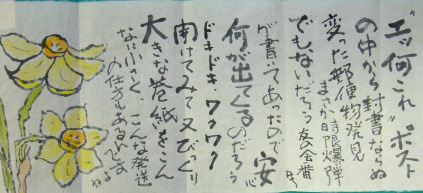 "エッ何これ"ポスト
の中から封書ならぬ
変った郵便物発見
まさか時限爆弾
でもないだろう友の会番号
が書いてあったので安心
何が出てくるのだろう
ドキドキ、ワクワク
開けてみて又びっくり
大きな巻紙をこん
なに小さく、こんな発送
の仕方もあるんですね